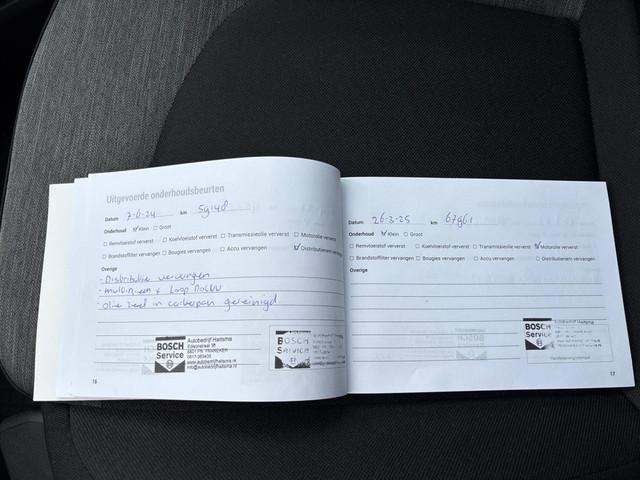 Uitgevoerde onderhoudsbeurten
Datum 7-6-24 km 59148
Onderhoud ☑ Klein ☐ Groot
☐ Remvloeistof ververst ☐ Koelvloeistof ververst ☐ Transmissieolie ververst ☐ Motorolie ververst
☐ Brandstoffilter vervangen ☐ Bougies vervangen ☐ Accu vervangen ☑ Distributieriem vervangen
Overige
- Distributie vervangen
- multiriem +
- olie zeef in carterpan gereinigd
BOSCH
Service
Autobedrijf Haitsma
FRANEKER
www.autobedrijfhaitsma.nl
info@autobedrijfhaitsma.nl
BOSCH
Service
16
Datum 26-3-25 km 67961
Onderhoud ☑ Klein ☐ Groot
☐ Remvloeistof ververst ☐ Koelvloeistof ververst ☐ Transmissieolie ververst ☑ Motorolie ververst
☐ Brandstoffilter vervangen ☐ Bougies vervangen ☐ Accu vervangen ☐ Distributieriem vervangen
Overige
BOSCH
Service
Autobedrijf Haitsma
17